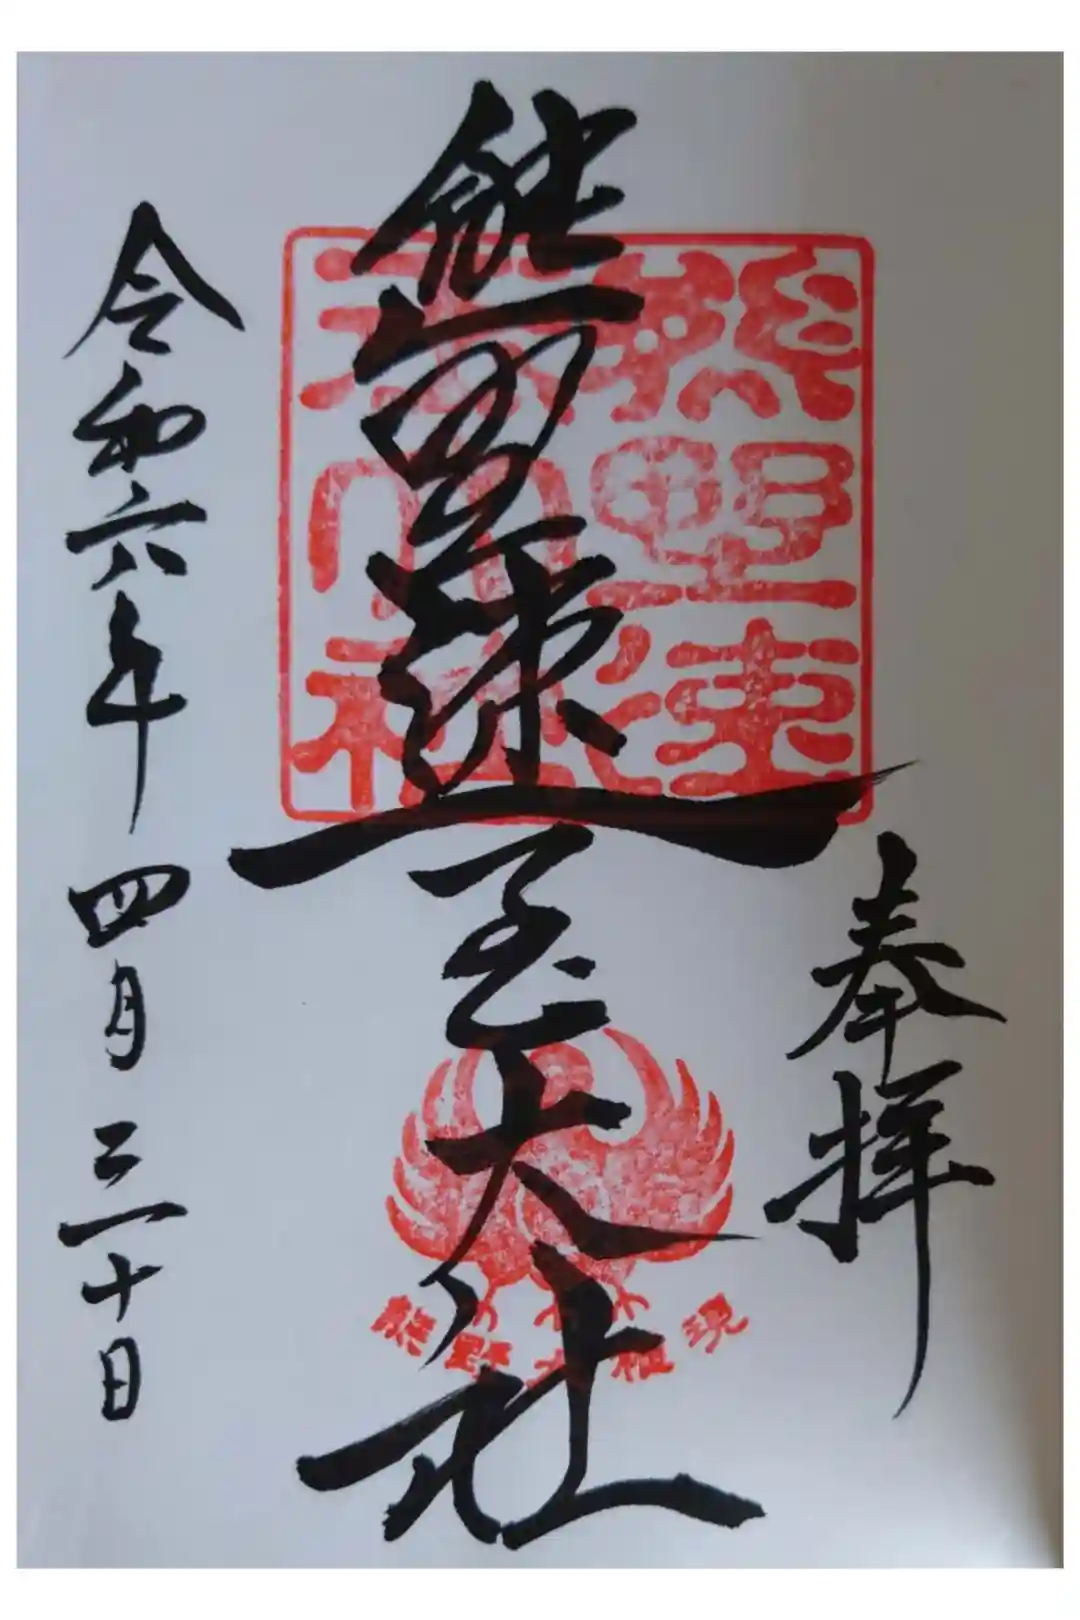 奉拝
熊野速玉大社
熊野速玉大社
熊野大権現
令和六年四月三十日